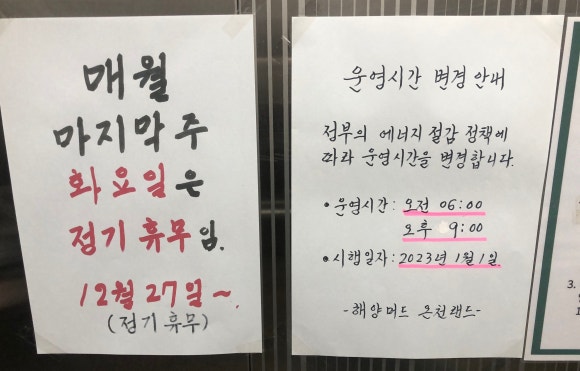 매월
마지막 주
화요일은
정기 휴무임.
12월 27일~.
(정기 휴무)
운영시간 변경 안내
정부의 에너지 절감 정책에
따라 운영시간을 변경합니다.
• 운영시간 : 오전 06:00
오후 9:00
• 시행일자 : 2023년 1월 1일
-해양머드 온천랜드-
3.